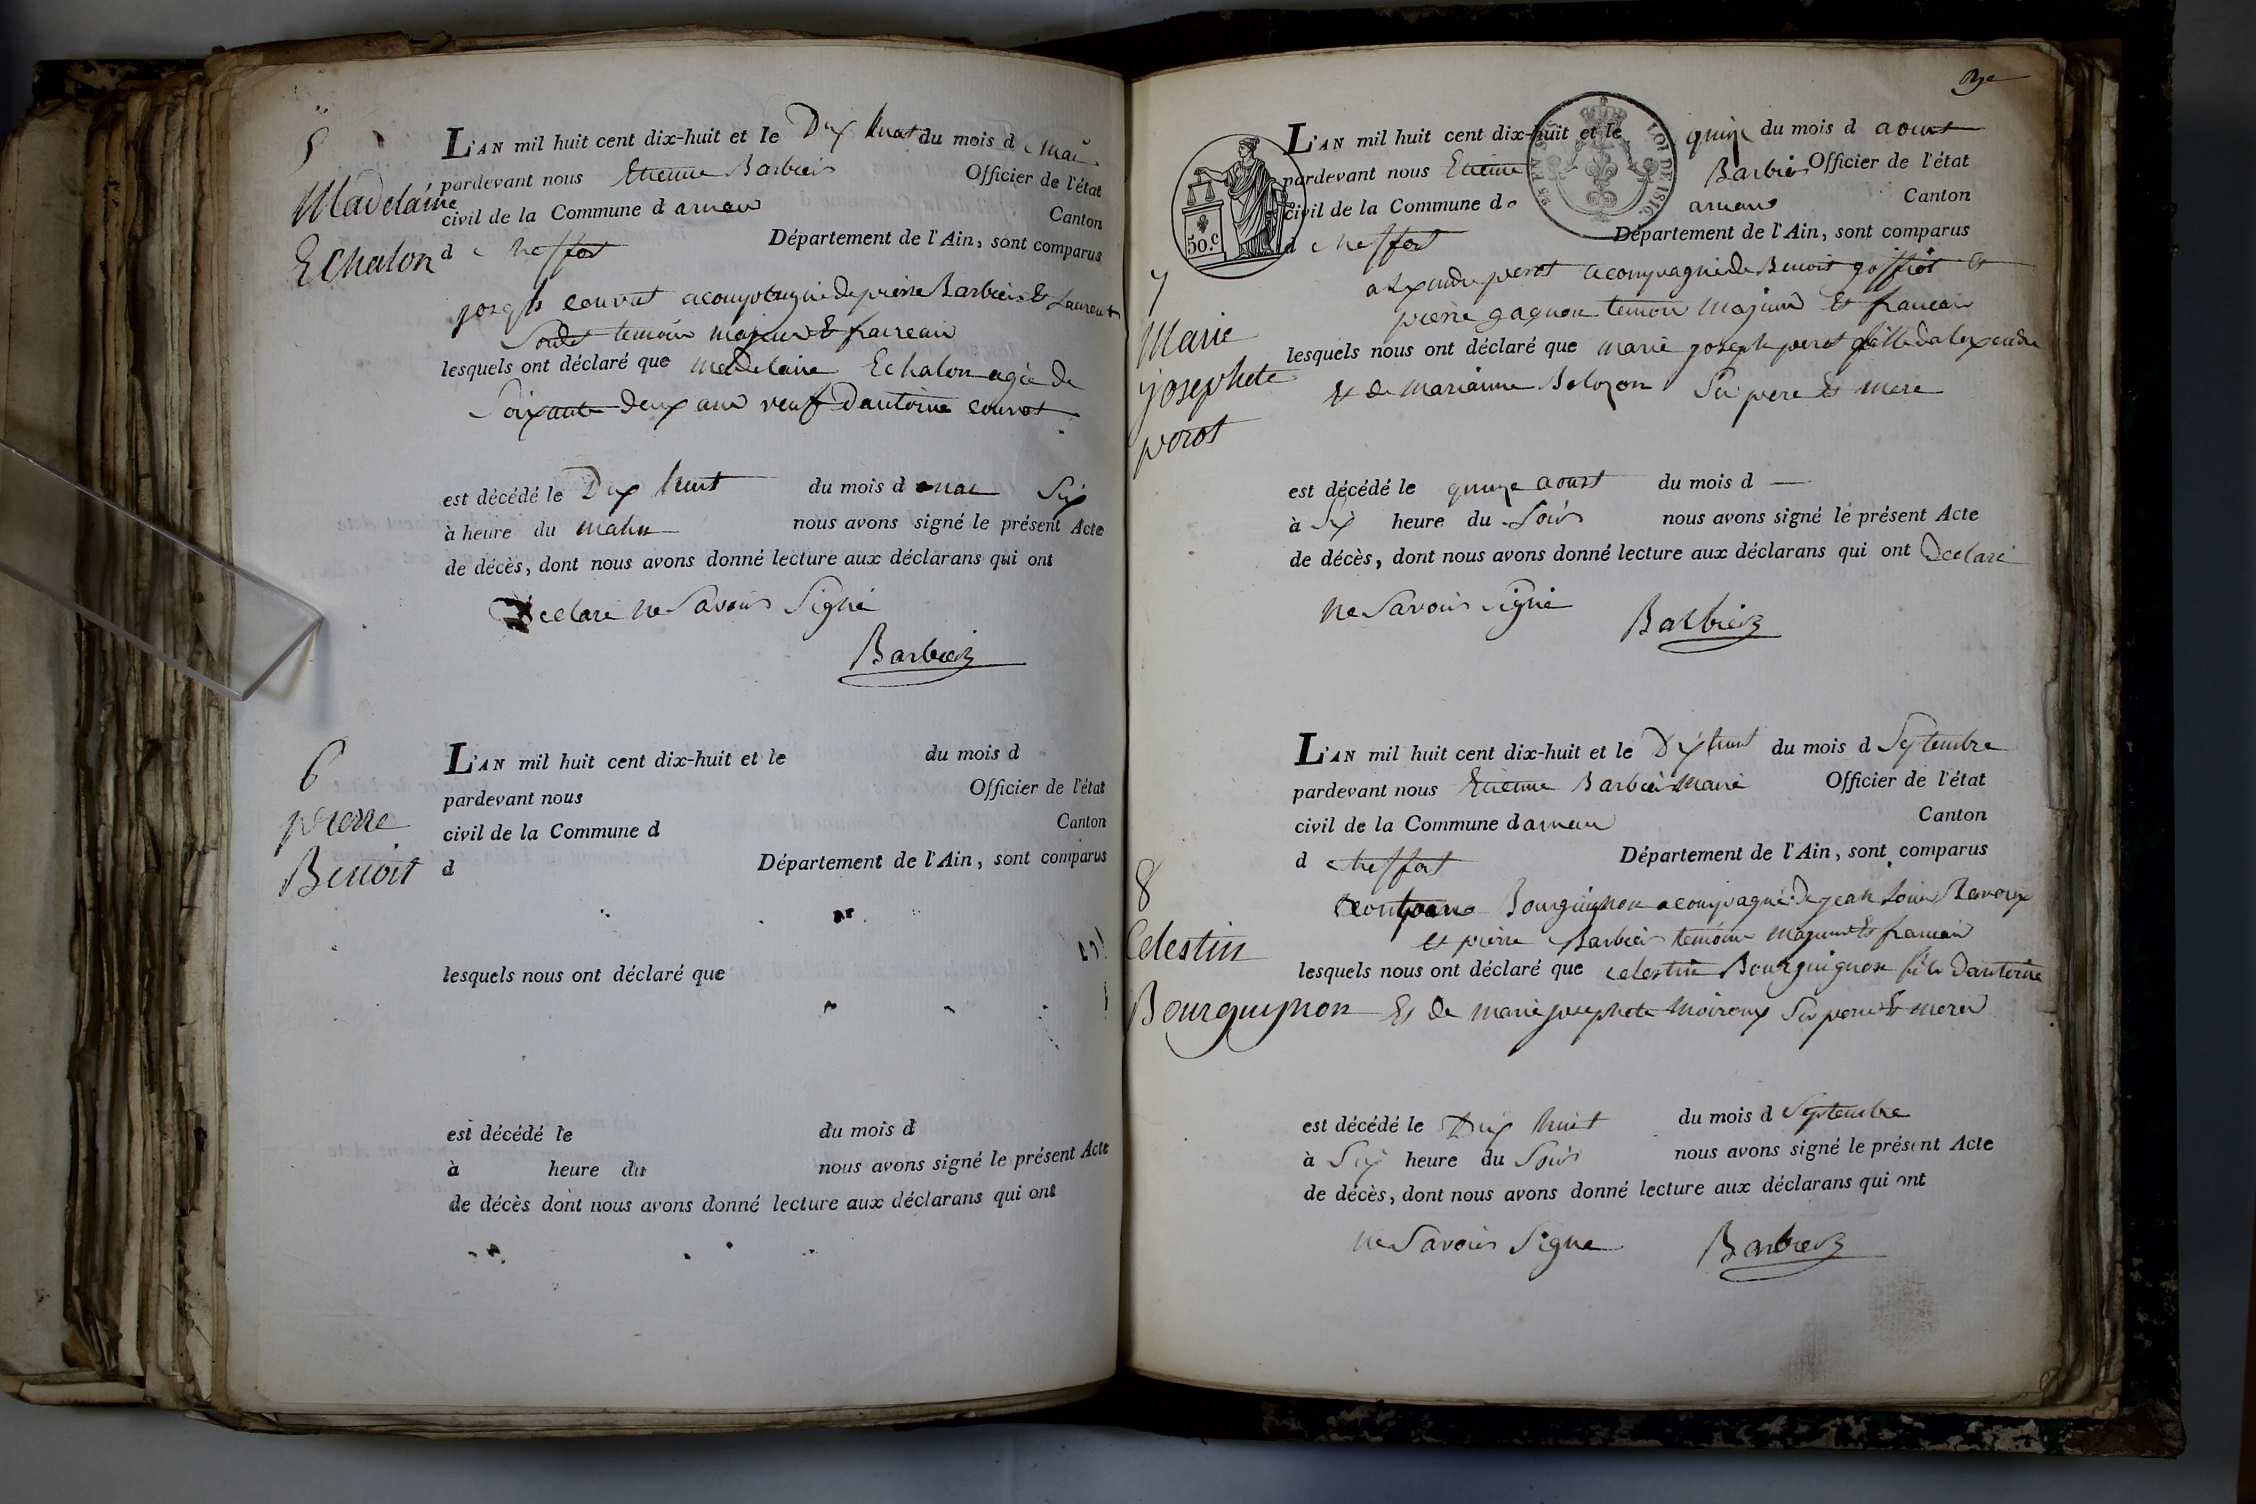 5
Madelaine
Echalon
L'AN mil huit cent dix-huit et le Dix huat du mois d mai
pardevant nous Etienne Barbier Officier de l'état
civil de la Commune d arnan Canton
d treffort Département de l'Ain, sont comparus
joseph couvat acompagnie de pierre Barbier Et Laurent
temoin majeur Et francais
lesquels ont déclaré que Madelaine Echalon agée de
Soixante deux ans veuf Dantoine couvat
est décédé le Dix huit du mois d mai Six
à heure du matin nous avons signé le présent Acte
de décès, dont nous avons donné lecture aux déclarans qui ont
Declaré ne Savoir Signé
Barbier
6
pierre
Benoit
L'AN mil huit cent dix-huit et le du mois d
pardevant nous Officier de l'état
civil de la Commune d Canton
d Département de l'Ain, sont comparus
lesquels nous ont déclaré que
est décédé le du mois d
à heure du nous avons signé le présent Acte
de décès dont nous avons donné lecture aux déclarans qui ont
50.c
LOI DE 1816.
7
Marie
josephete
perot
L'AN mil huit cent dix-huit et le quinze du mois d aoust
pardevant nous Etienne Barbier Officier de l'état
civil de la Commune d arnans Canton
d treffort Département de l'Ain, sont comparus
perot acompagnié de Benoit goffiot et
pierre gagnon temoin Majeur Et francais
lesquels nous ont déclaré que marie joseph perot fille dalexandre
et de marianne Belozon Ses pere Et mere
est décédé le quinze aoust du mois d —
à Six heure du Soir nous avons signé lé présent Acte
de décès, dont nous avons donné lecture aux déclarans qui ont Declaré
ne Savoir signé
Barbier
8
Celestin
Bourguignon
L'AN mil huit cent dix-huit et le Dix huit du mois d Septembre
pardevant nous Etienne Barbier Maire Officier de l'état
civil de la Commune d arnan Canton
d treffort Département de l'Ain, sont comparus
Bourguignon acompagné De jean Louis Ravoux
et pierre Barbier temoin Majeur Et francais
lesquels nous ont déclaré que celestin Bourguignon fils Dantoine
Et De marie josephete Moiroux Ses pere Et mere
est décédé le Dix huit du mois d Septembre
à Six heure du Soir nous avons signé le présent Acte
de décès, dont nous avons donné lecture aux déclarans qui ont
ne Savoir Signe
Barbier